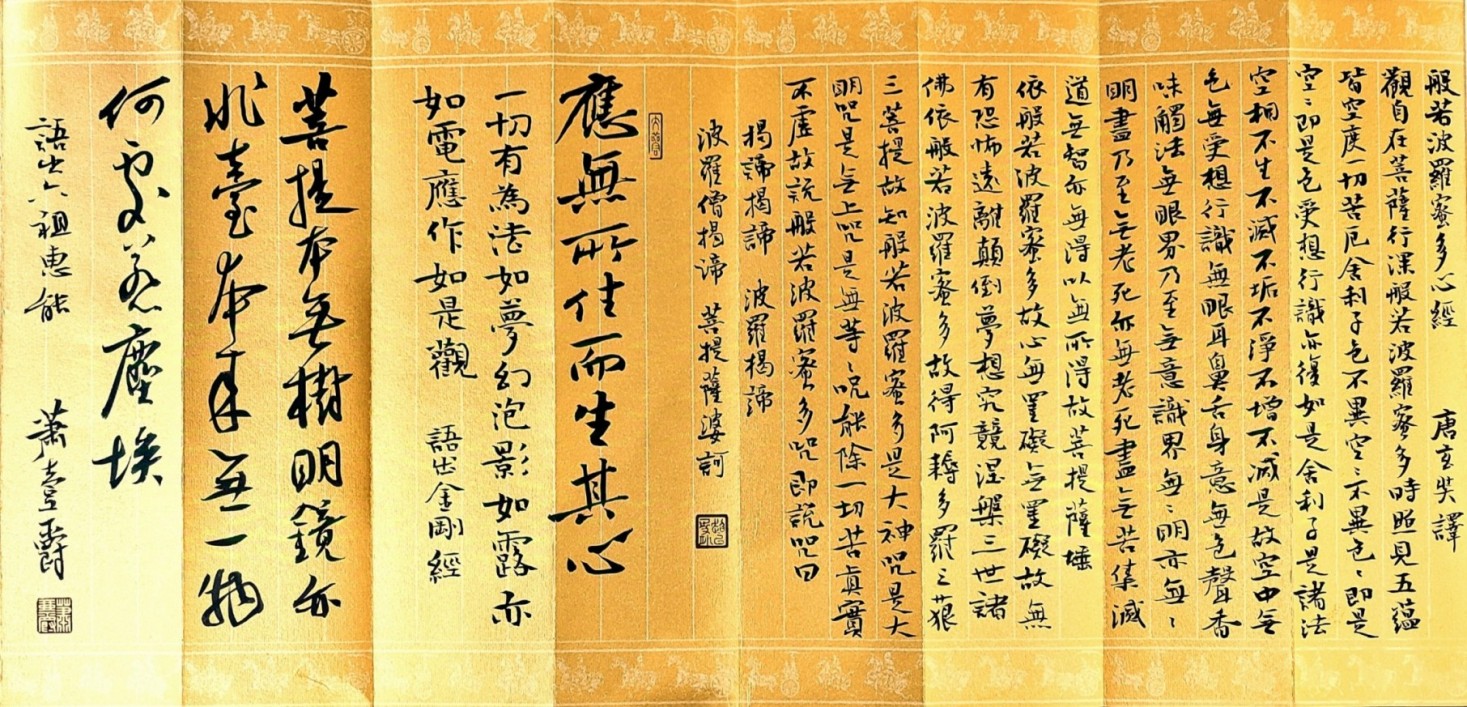 般若波羅蜜多心經 唐玄奘譯
觀自在菩薩行深般若波羅蜜多時照見五蘊
皆空度一切苦厄舍利子色不異空〻不異色〻即是
空〻即是色受想行識亦復如是舍利子是諸法
空相不生不滅不垢不淨不增不減是故空中無
色無受想行識無眼耳鼻舌身意無色聲香
味觸法無眼界乃至无意識界無〻明亦無〻
明盡乃至无老死亦無老死盡无苦集滅
道無智亦無得以無所得故菩提薩埵
依般若波羅蜜多故心無罣礙无罣礙故無
有恐怖遠離顛倒夢想究競涅槃三世諸
佛依般若波羅蜜多故得阿耨多羅三藐
三菩提故知般若波羅蜜多是大神咒是大
明咒是无上咒是無等〻咒能除一切苦真實
不虛故說般若波羅蜜多咒即說咒曰
揭諦揭諦 波羅揭諦
波羅僧揭諦 菩提薩婆訶
應無所住而生其心
一切有為法如夢幻泡影如露亦
如電應作如是觀 語出金剛經
菩提本无樹明鏡亦
非臺本來無一物
何處惹塵埃
語出六祖惠能 蕭壹爵